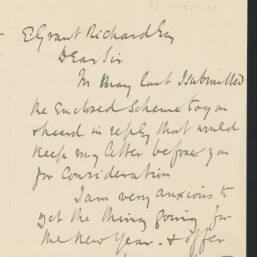 E Grant Richard Esq
Dear Sir
In May last I submitted
the enclosed scheme to you
& heard in reply that would
keep my letter before you
for consideration
I am very anxious to
get the thing going for
the New Year - & offer